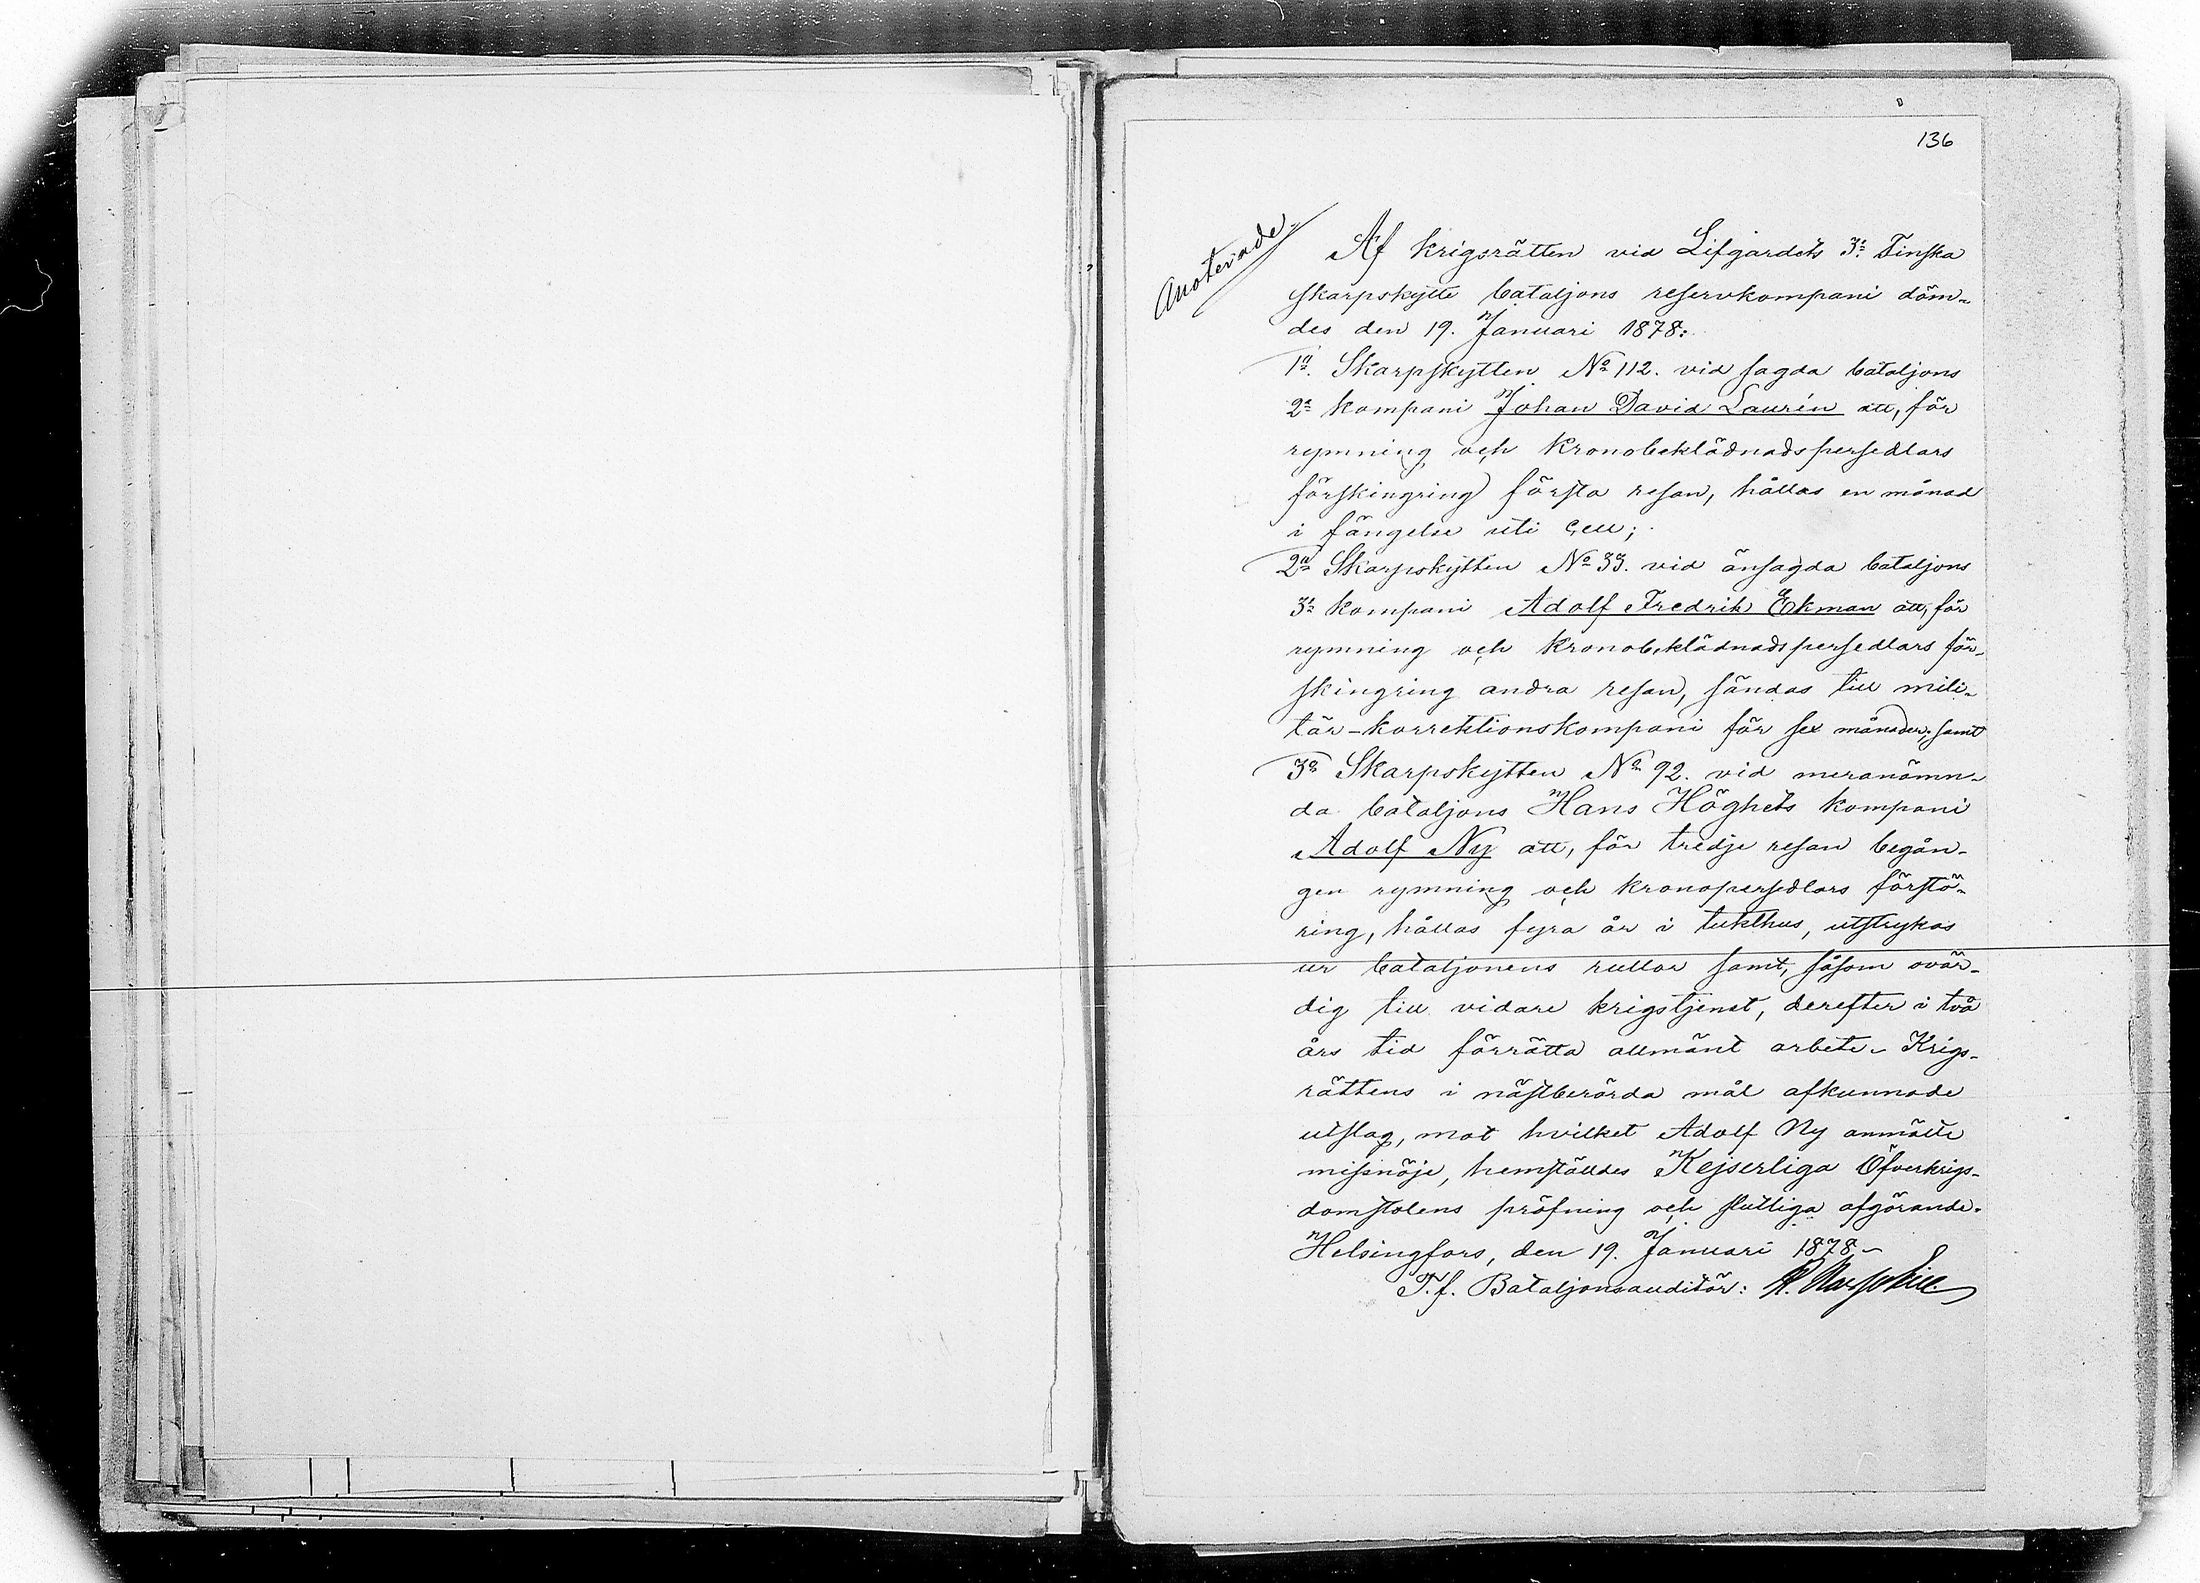 136
Anoterade.
Af krigsrätten vid Lifgardets 3:e Finska
skarpskytte bataljons reservkompani döm-
des den 19. Januari 1878:
1:o Skarpskytten No 112. vid sagda bataljons
2:a kompani Johan David Laurén att, för
rymning och kronobeklädnadspersedlars
förskingring första resan, hållas en månad
i fängelse uti cell;
2:o Skarpskytten No 33. vid änsagda bataljons
3:e kompani Adolf Fredrik Ekman att, för
rymning och kronobeklädnadspersedlars för-
skingring andra resan, sändas till mili-
tär-korrektionskompani för sex månader; samt
3:o Skarpskytten No 92. vid meranämn-
da bataljons Hans Höghets kompani
Adolf Ny att, för tredje resan begån-
gen rymning och kronopersedlars förstö-
ring, hållas fyra år i tukthus, utstrykas
ur bataljonens rullor samt, såsom ovär-
dig till vidare krigstjenst, derefter i två
års tid förrätta allmänt arbete. Krigs-
rättens i nästberörda mål afkunnade
utslag, mot hvilket Adolf Ny anmälte
missnöje, hemställdes Kejserliga Öfverkrigs-
domstolens pröfning och slutliga afgörande.
Helsingfors, den 19. Januari 1878.
T.f. Bataljonsauditör: